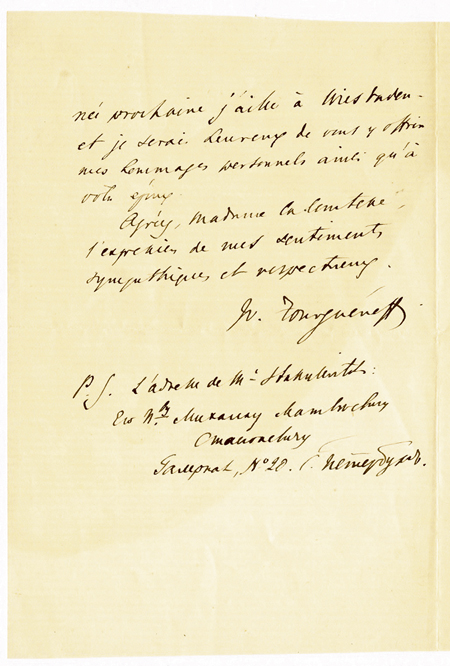 née prochaine j'aille à Wiesbaden -
et je serais heureux de vous y offrir
mes hommages personnels ainsi qu'à
votre époux.
Agréez, Madame la Comtesse,
l'expression de mes sentiments
sympathiques et respectueux.
Iv. Tourguéneff.
P. S. L'adresse de Mr Stassulevitch:
Михаилу Матвеевичу
Стасюлевичу
Галерная, № 20. С. Петербургъ.